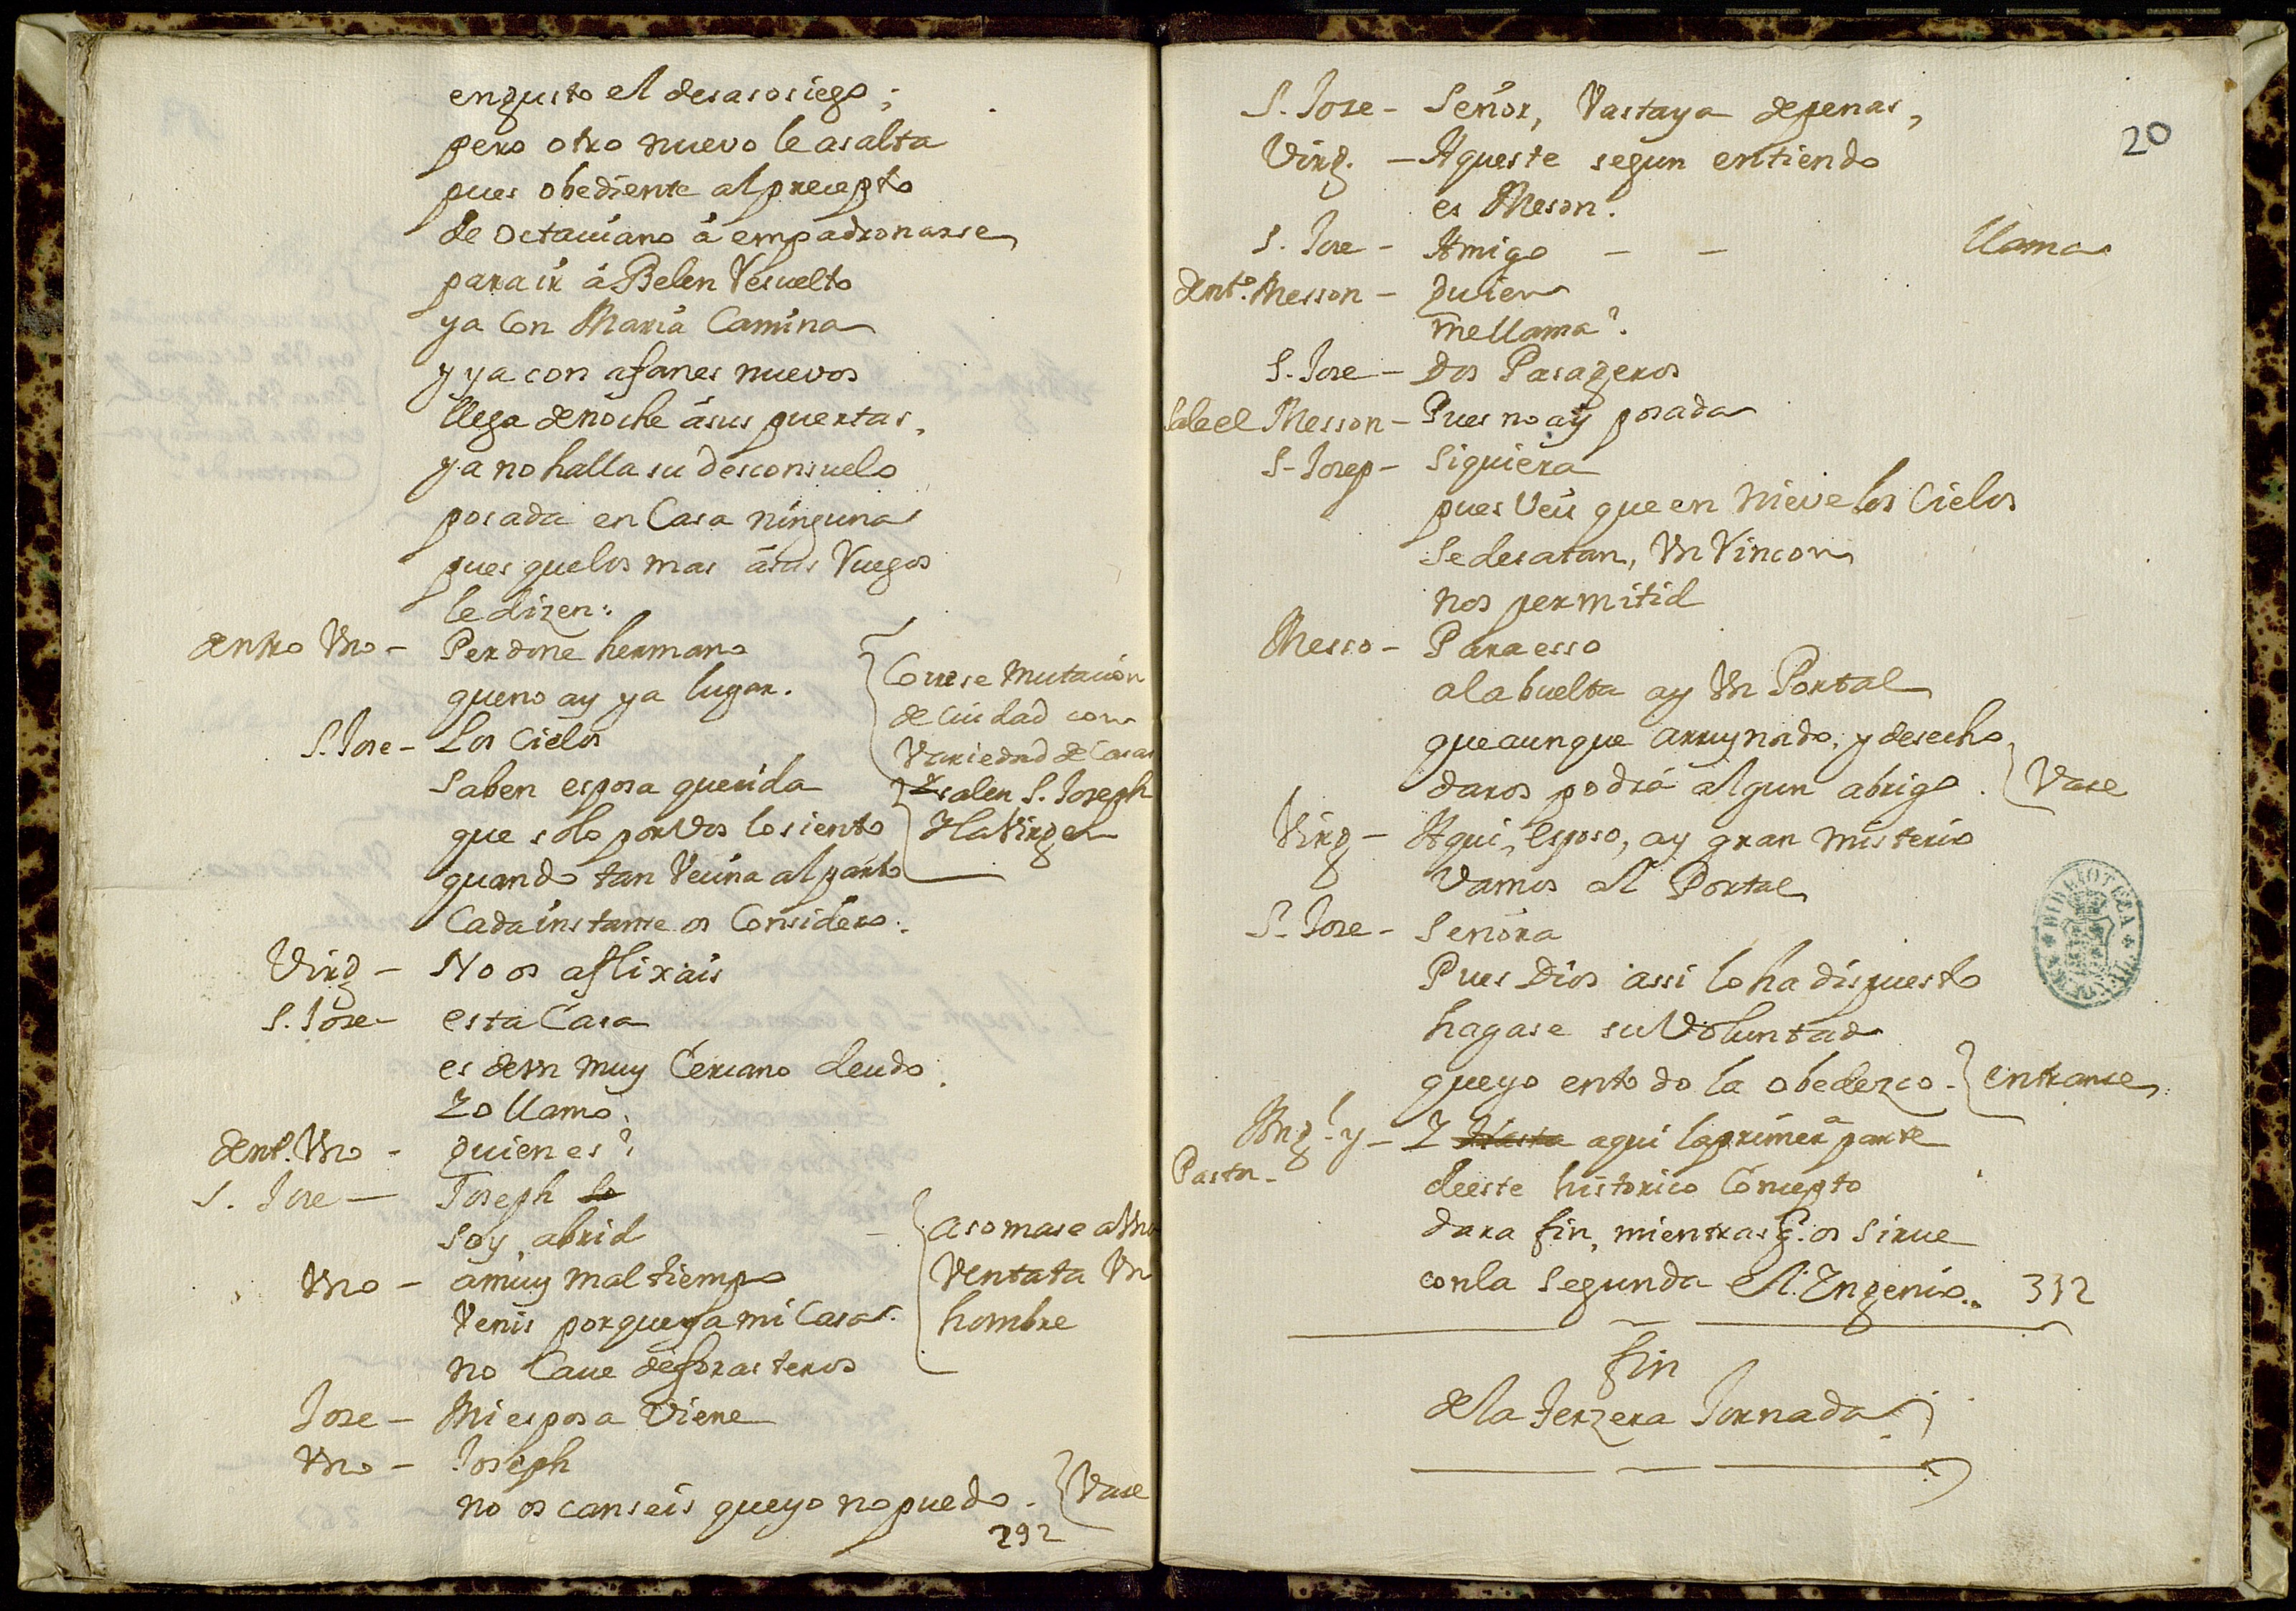 engusto el desasosiego;
pero otro nuevo le asalta
pues obediente al precepto
de Octauiano á empadronarse
para ir á Belen Resuelto
ya con Maria Camina
y ya con afanes nuevos
llega de noche ásus puertas,
ya no halla su desconsuelo
posada en Casa ninguna
pues quelos mas ásus Ruegos
le dizen:
dentro Vno - Perdone hermano
queno ay ya lugar.
{Correse Mutacion
de Ciudad con
Variedad de Casas
S. Jose - Los Cielos
Saben esposa querida
que solo porVos lo siento
quando tan Vecina al parto
Cada instante os Considero.
Y salen S. Joseph
Y la Virgen
Virg - No os aflixais
S. Jose - esta Casa
es deVn muy Cercano deudo.
Yo llamo.
dent. Vno - quien es?
S. Jose - Joseph so
soy, abrid
{asomase a Vna
Ventata Vn
hombre
Vno - amuy mal tiempo
Venis porqueya mi Casa
no Caue deforasteros
Jose - Mi esposa Viene
Vno - Joseph
no os canseis queyo no puedo. {Vase
292
20
S. Jose - Señor, Vastaya depenas,
Virg. - Aqueste segun entiendo
es Meson.
S. Jose - Amigo - - llama
dentº. Messon - Quien
mellama?
S. Jose - Dos Pasageros
Sale el Messon - Pues no ay posada
S. Josep - Siquiera
pues Veis que en Nieve los Cielos
Se desatan, Vn Rincon
nos permitid
Messo - Para esso
ala buelta ay Vn Portal
queaunque arruynado, y desecho
daros podrá algun abrigo. {Vase
Virg - Aqui, esposo, ay gran misterio
Vamos al Portal
S. Jose - Señora
Pues Dios assi lo ha dispuesto
hagase su Voluntad
queyo ento do la obedezco. {entranse
Ang.l y - Y Hasta aqui laprimera parte
Pastor - deeste historico Concepto
dara fin, mientras q. os sirue
conla segunda El Yngenio.. 332
fin
dela Terzera Jornada
BIBLIOTECA